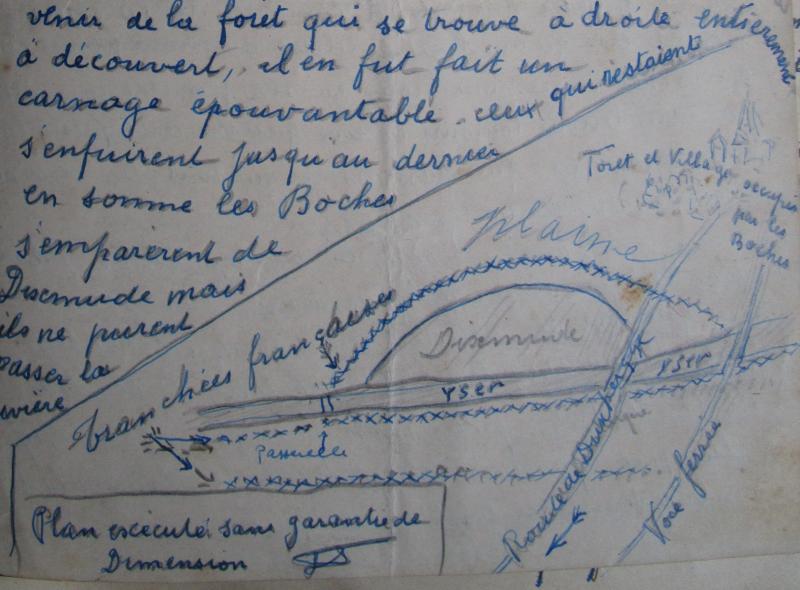 venir de la forêt qui se trouve à droite entièrement
à découvert, il en fut fait un
carnage épouvantable. ceux qui restaient
s'enfuirent jusqu'au dernier
en somme les Boches
s'emparèrent de
Dixmude mais
ils ne purent
passer la
rivière
Foret et Village occupés
par les
Boches
plaine
tranchées françaises
Dixmude
Yser
Yser
Passerelle
Route de Dunkerque
Voie ferrée
Plan exécuté sans garantie de
Dimension